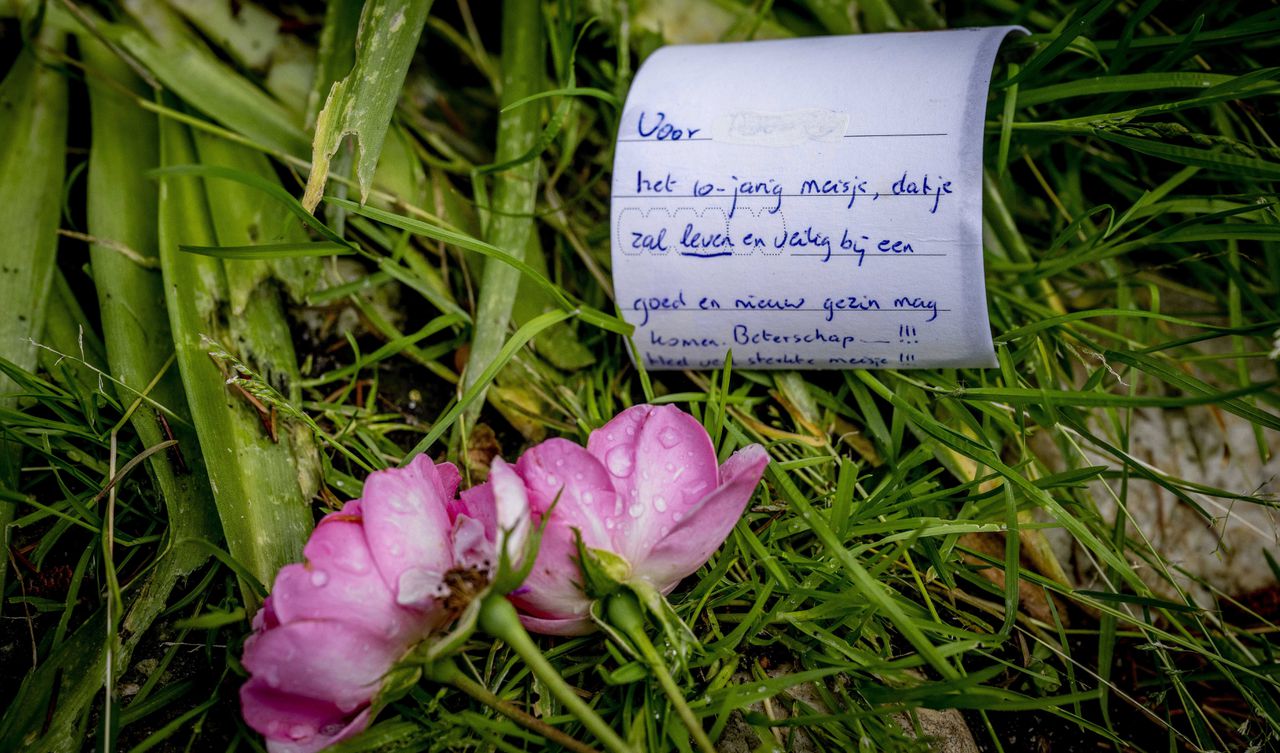 Voor
het 10-jarig meisje, dat je
zal leven en veilig bij een
goed en nieuw gezin mag
komen. Beterschap !!!
Heel veel sterkte meisje !!!